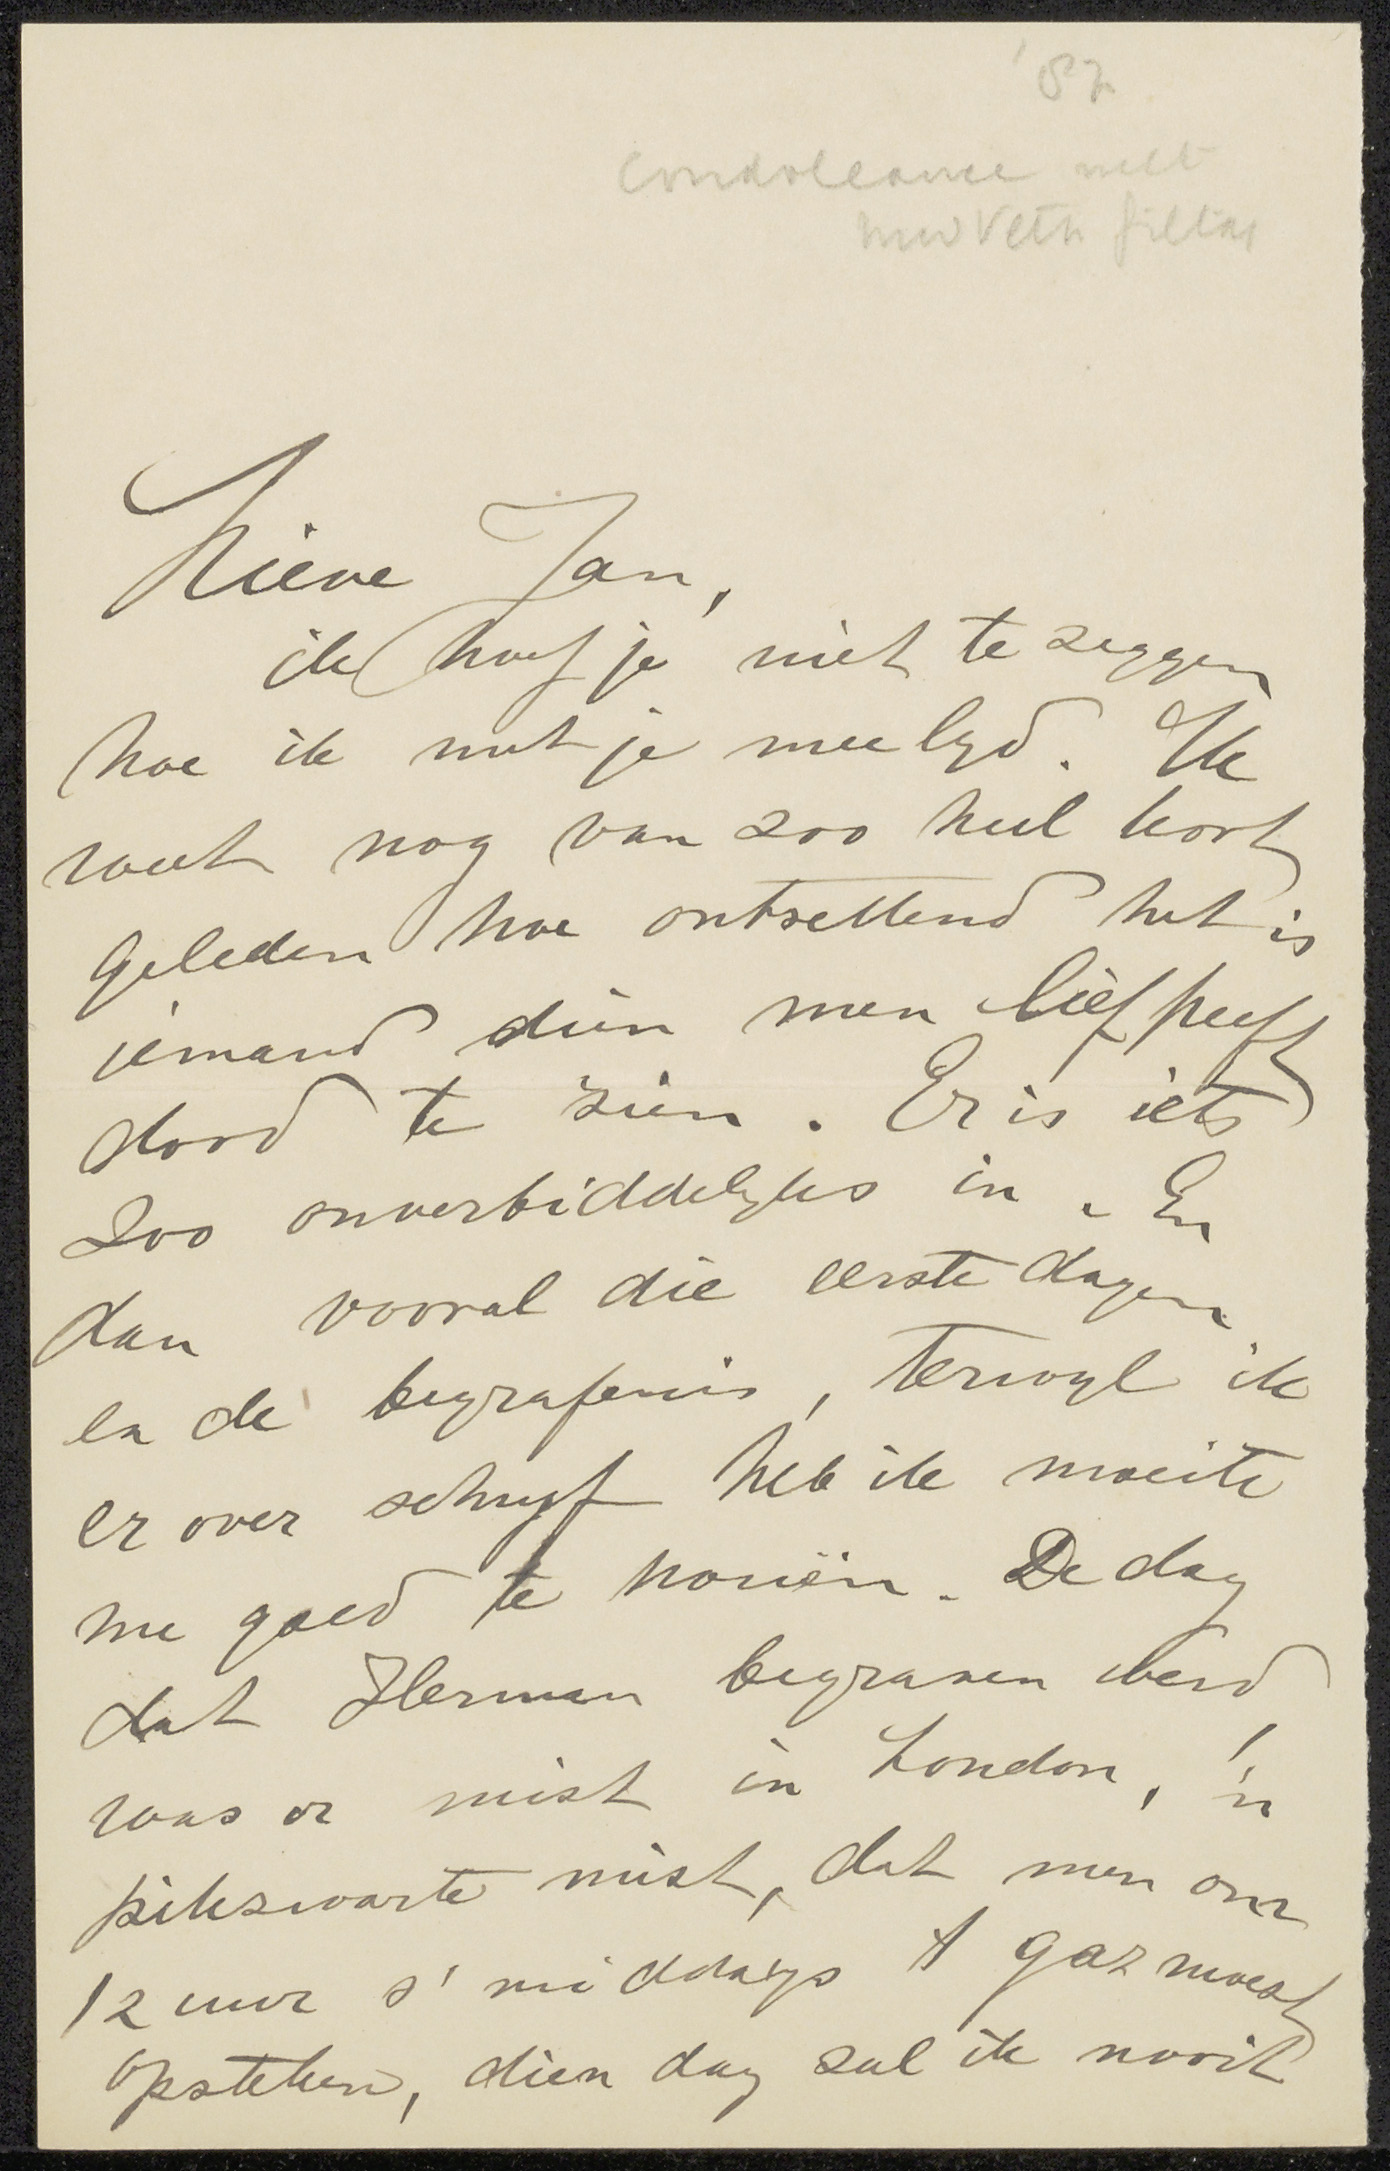 '87
Condoleance met
mw Veth
Lieve Jan,
ik hoef je niet te zeggen
hoe ik met je meelyd. Ik
weet nog van zoo heel kort
geleden hoe ontzettend het is
iemand dien men lief heeft
dood te zien. Er is iets
zoo onverbiddelyks in. En
dan vooral die eerste dagen
en de begrafenis, terwyl ik
er over schryf heb ik moeite
me goed te houën. De dag
dat Herman begraven werd
was er mist in London, 'n
pikzwarte mist, dat men om
12 uur s' middags 't gaz moest
opsteken, dien dag zal ik nooit